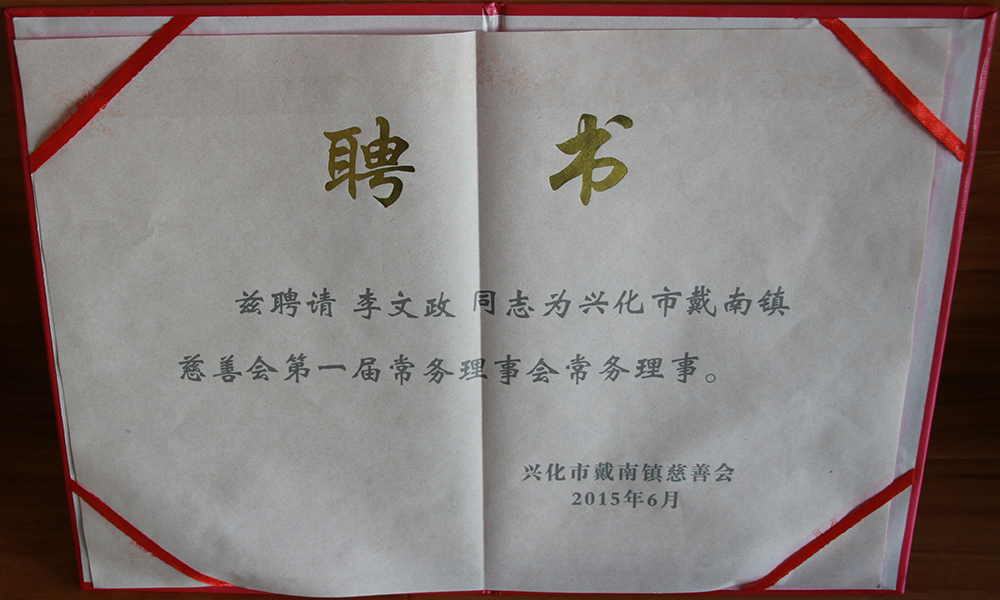 聘书
兹聘请 李文政 同志为兴化市戴南镇
慈善会第一届常务理事会常务理事。
兴化市戴南镇慈善会
2015年6月